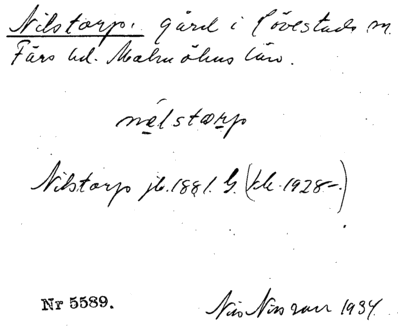 Nilstorp: gård i Lövestads sn.
Färs hd. Malmöhus län.
nelstorp
Nilstorp jb. 1881. G. (kk. 1928–.)
Nr 5589.
Nils Nilsson 1934.